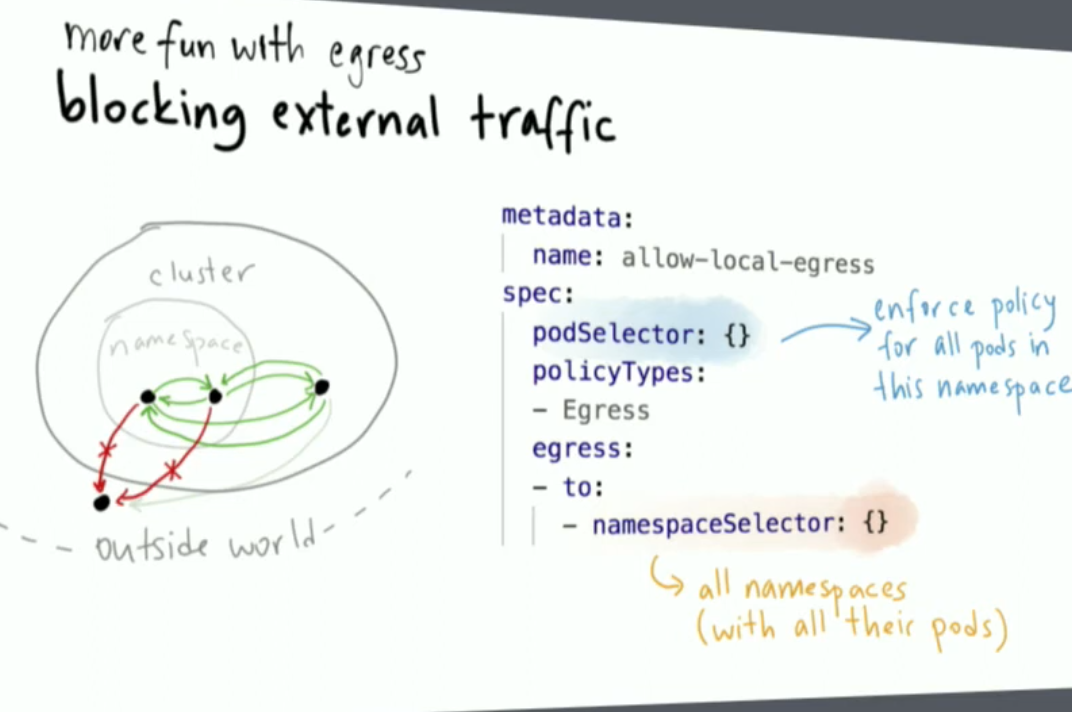 more fun with egress
blocking external traffic
cluster
namespace
outside world
metadata:
name: allow-local-egress
spec:
podSelector: {}
policyTypes:
- Egress
egress:
- to:
- namespaceSelector: {}
enforce policy
for all pods in
this namespace
all namespaces
(with all their pods)